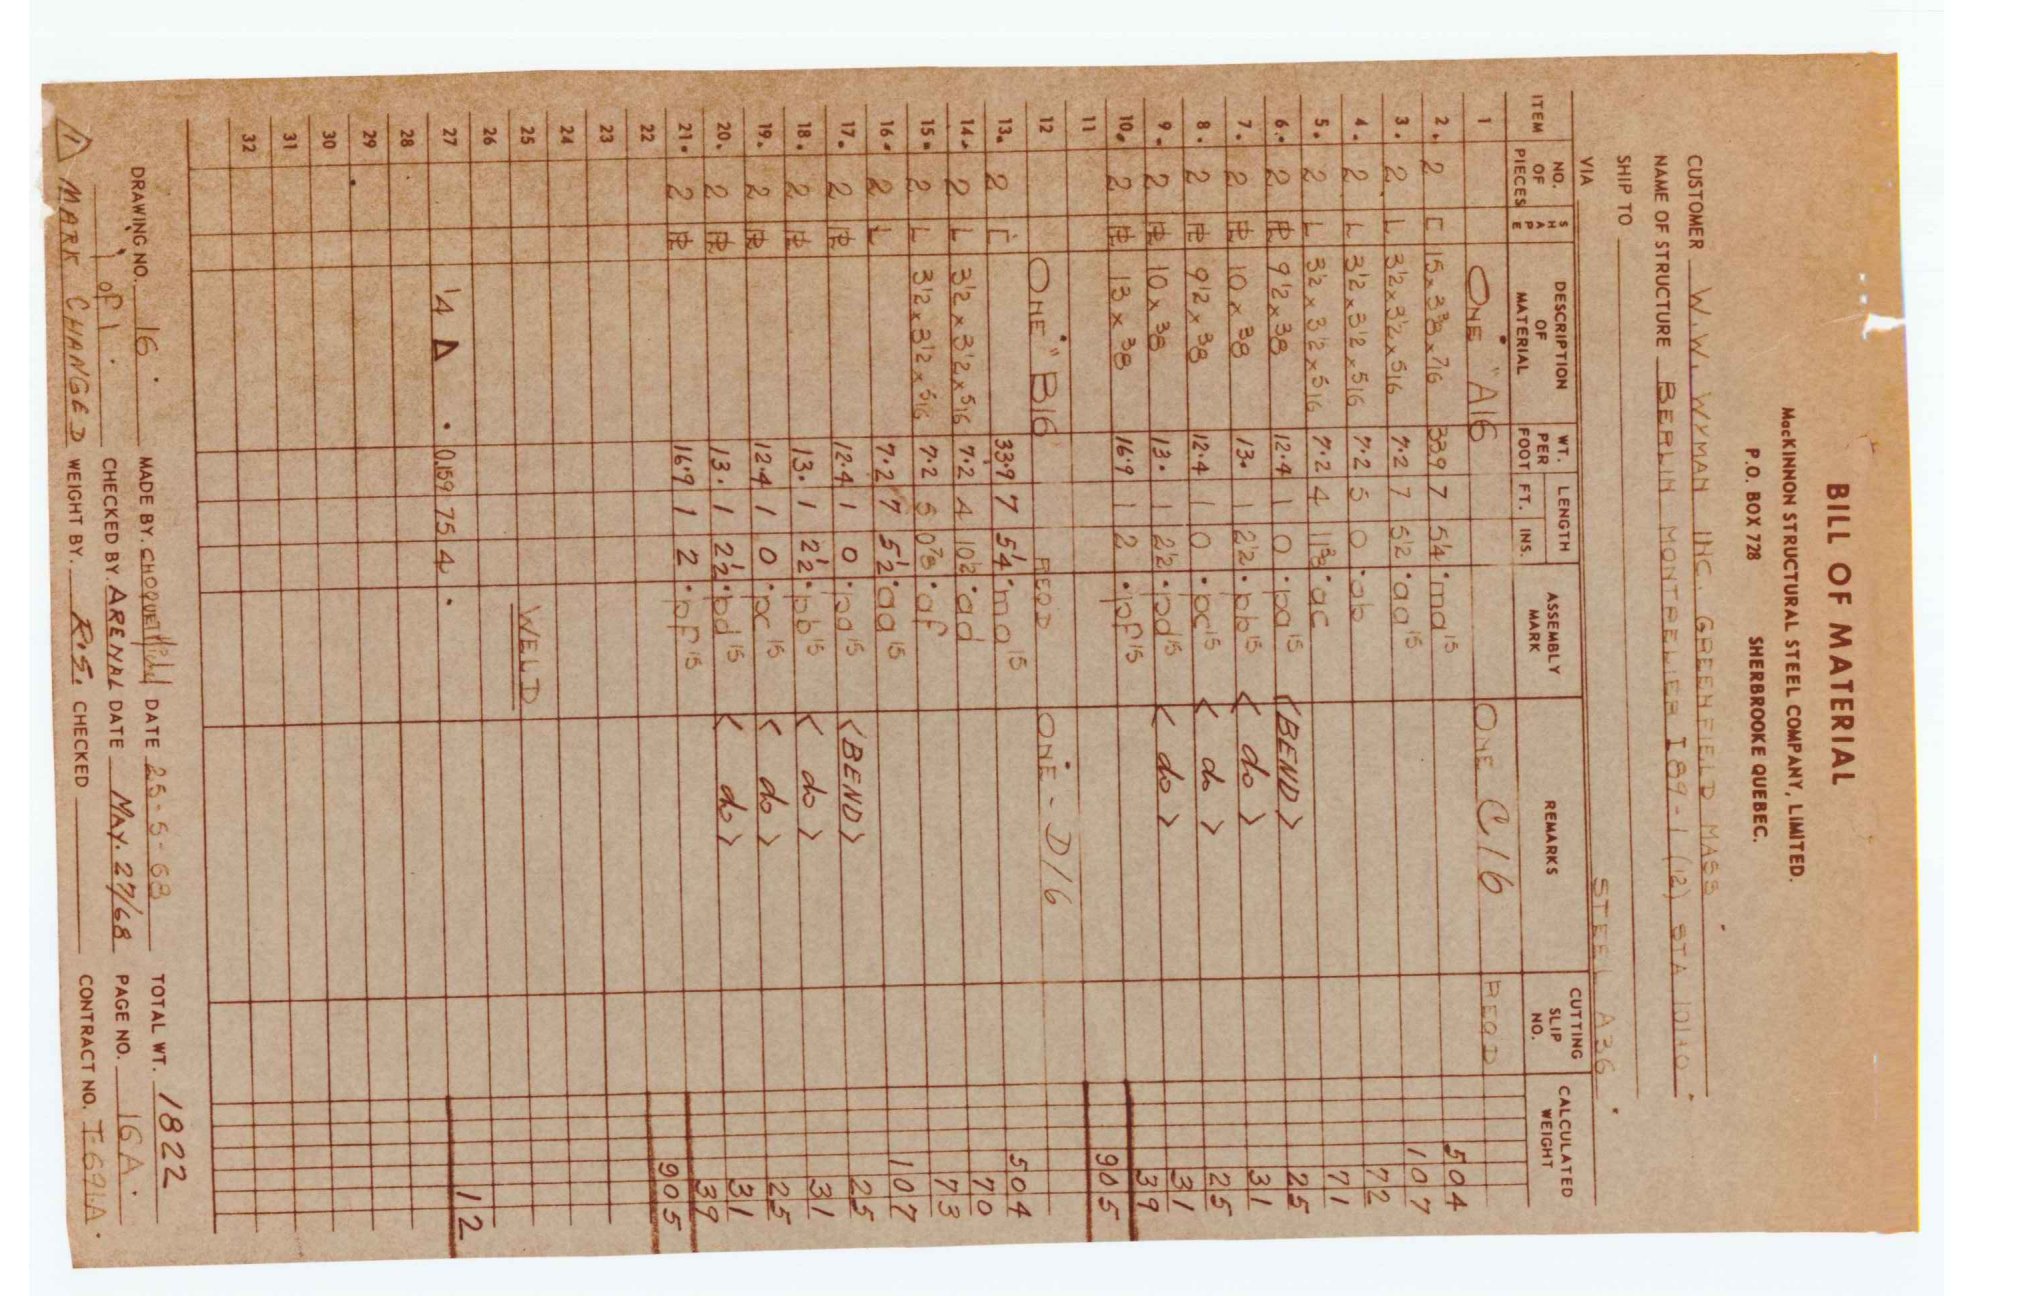 BILL OF MATERIAL
MacKINNON STRUCTURAL STEEL COMPANY, LIMITED.
P.O. BOX 728 SHERBROOKE QUEBEC.
CUSTOMER W.W. WYMAN INC. GREENFIELD MASS
NAME OF STRUCTURE BERLIN MONTPELIER I 89-1 (12) STA 101+0
SHIP TO
VIA STEEL A36
ITEM NO. OF PIECES SHAPE DESCRIPTION OF MATERIAL WT. PER FOOT LENGTH FT. INS. ASSEMBLY MARK REMARKS CUTTING SLIP NO. CALCULATED WEIGHT
1 ONE "A16 ONE C16 REQD
2. 2 [ 15 x 3 3/8 x 7/16 33.9 7 5 1/4 ma 15 504
3. 2 L 3 1/2 x 3 1/2 x 5/16 7.2 7 5 1/2 aa 15 107
4. 2 L 3 1/2 x 3 1/2 x 5/16 7.2 5 0 ab 72
5. 2 L 3 1/2 x 3 1/2 x 5/16 7.2 4 11 3/8 ac 71
6. 2 PL 9 1/2 x 3/8 12.4 1 0 pa 15 <BEND> 25
7. 2 PL 10 x 3/8 13. 1 2 1/2 pb 15 < do > 31
8. 2 PL 9 1/2 x 3/8 12.4 1 0 pc 15 < do > 25
9. 2 PL 10 x 3/8 13. 1 2 1/2 pd 15 < do > 31
10. 2 PL 13 x 3/8 16.9 1 2 pf 15 39
11 905
12 ONE "B16 REQD ONE - D16
13. 2 [ 33.9 7 5 1/4 ma 15 504
14. 2 L 3 1/2 x 3 1/2 x 5/16 7.2 4 10 1/2 ad 70
15. 2 L 3 1/2 x 3 1/2 x 5/16 7.2 5 0 7/8 af 73
16. 2 L 7.2 7 5 1/2 aa 15 107
17. 2 PL 12.4 1 0 pa 15 <BEND> 25
18. 2 PL 13. 1 2 1/2 pb 15 < do > 31
19. 2 PL 12.4 1 0 pc 15 < do > 25
20. 2 PL 13. 1 2 1/2 pd 15 < do > 31
21. 2 PL 16.9 1 2 pf 15 39
22 905
23
24
25 WELD
26
27 1/4 Δ 0.159 75 4 12
28
29
30
31
32
DRAWING NO. 16 MADE BY. CHOQUETTE DATE 25-5-68 TOTAL WT. 1822
1 of 1 CHECKED BY. ARENAL DATE MAY. 27/68 PAGE NO. 16A
1 MARK CHANGED WEIGHT BY. R.S. CHECKED CONTRACT NO. T-691A